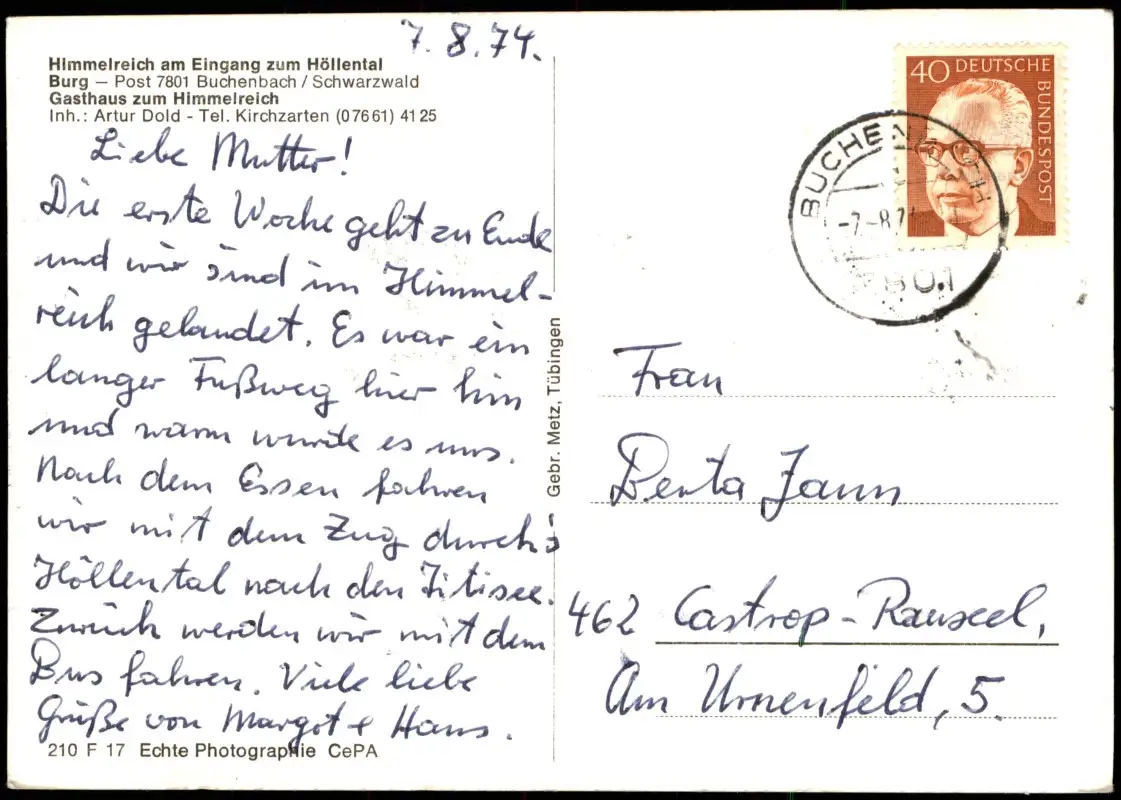 7.8.74.
Himmelreich am Eingang zum Höllental
Burg – Post 7801 Buchenbach / Schwarzwald
Gasthaus zum Himmelreich
Inh.: Artur Dold - Tel. Kirchzarten (07661) 4125
Liebe Mutter!
Die erste Woche geht zu Ende
und wir sind im Himmel-
reich gelandet. Es war ein
langer Fußweg hier hin
und warm wurde es uns.
Nach dem Essen fahren
wir mit dem Zug durch's
Höllental nach den Titisee.
Zurück werden wir mit dem
Bus fahren. Viele liebe
Grüße von Margot + Hans.
210 F 17 Echte Photographie CePA
Gebr. Metz, Tübingen
40 DEUTSCHE
BUNDESPOST
BUCHENBACH
-7.-8.74
7801
Frau
Berta Jann
462 Castrop-Rauxel,
Am Urnenfeld, 5.